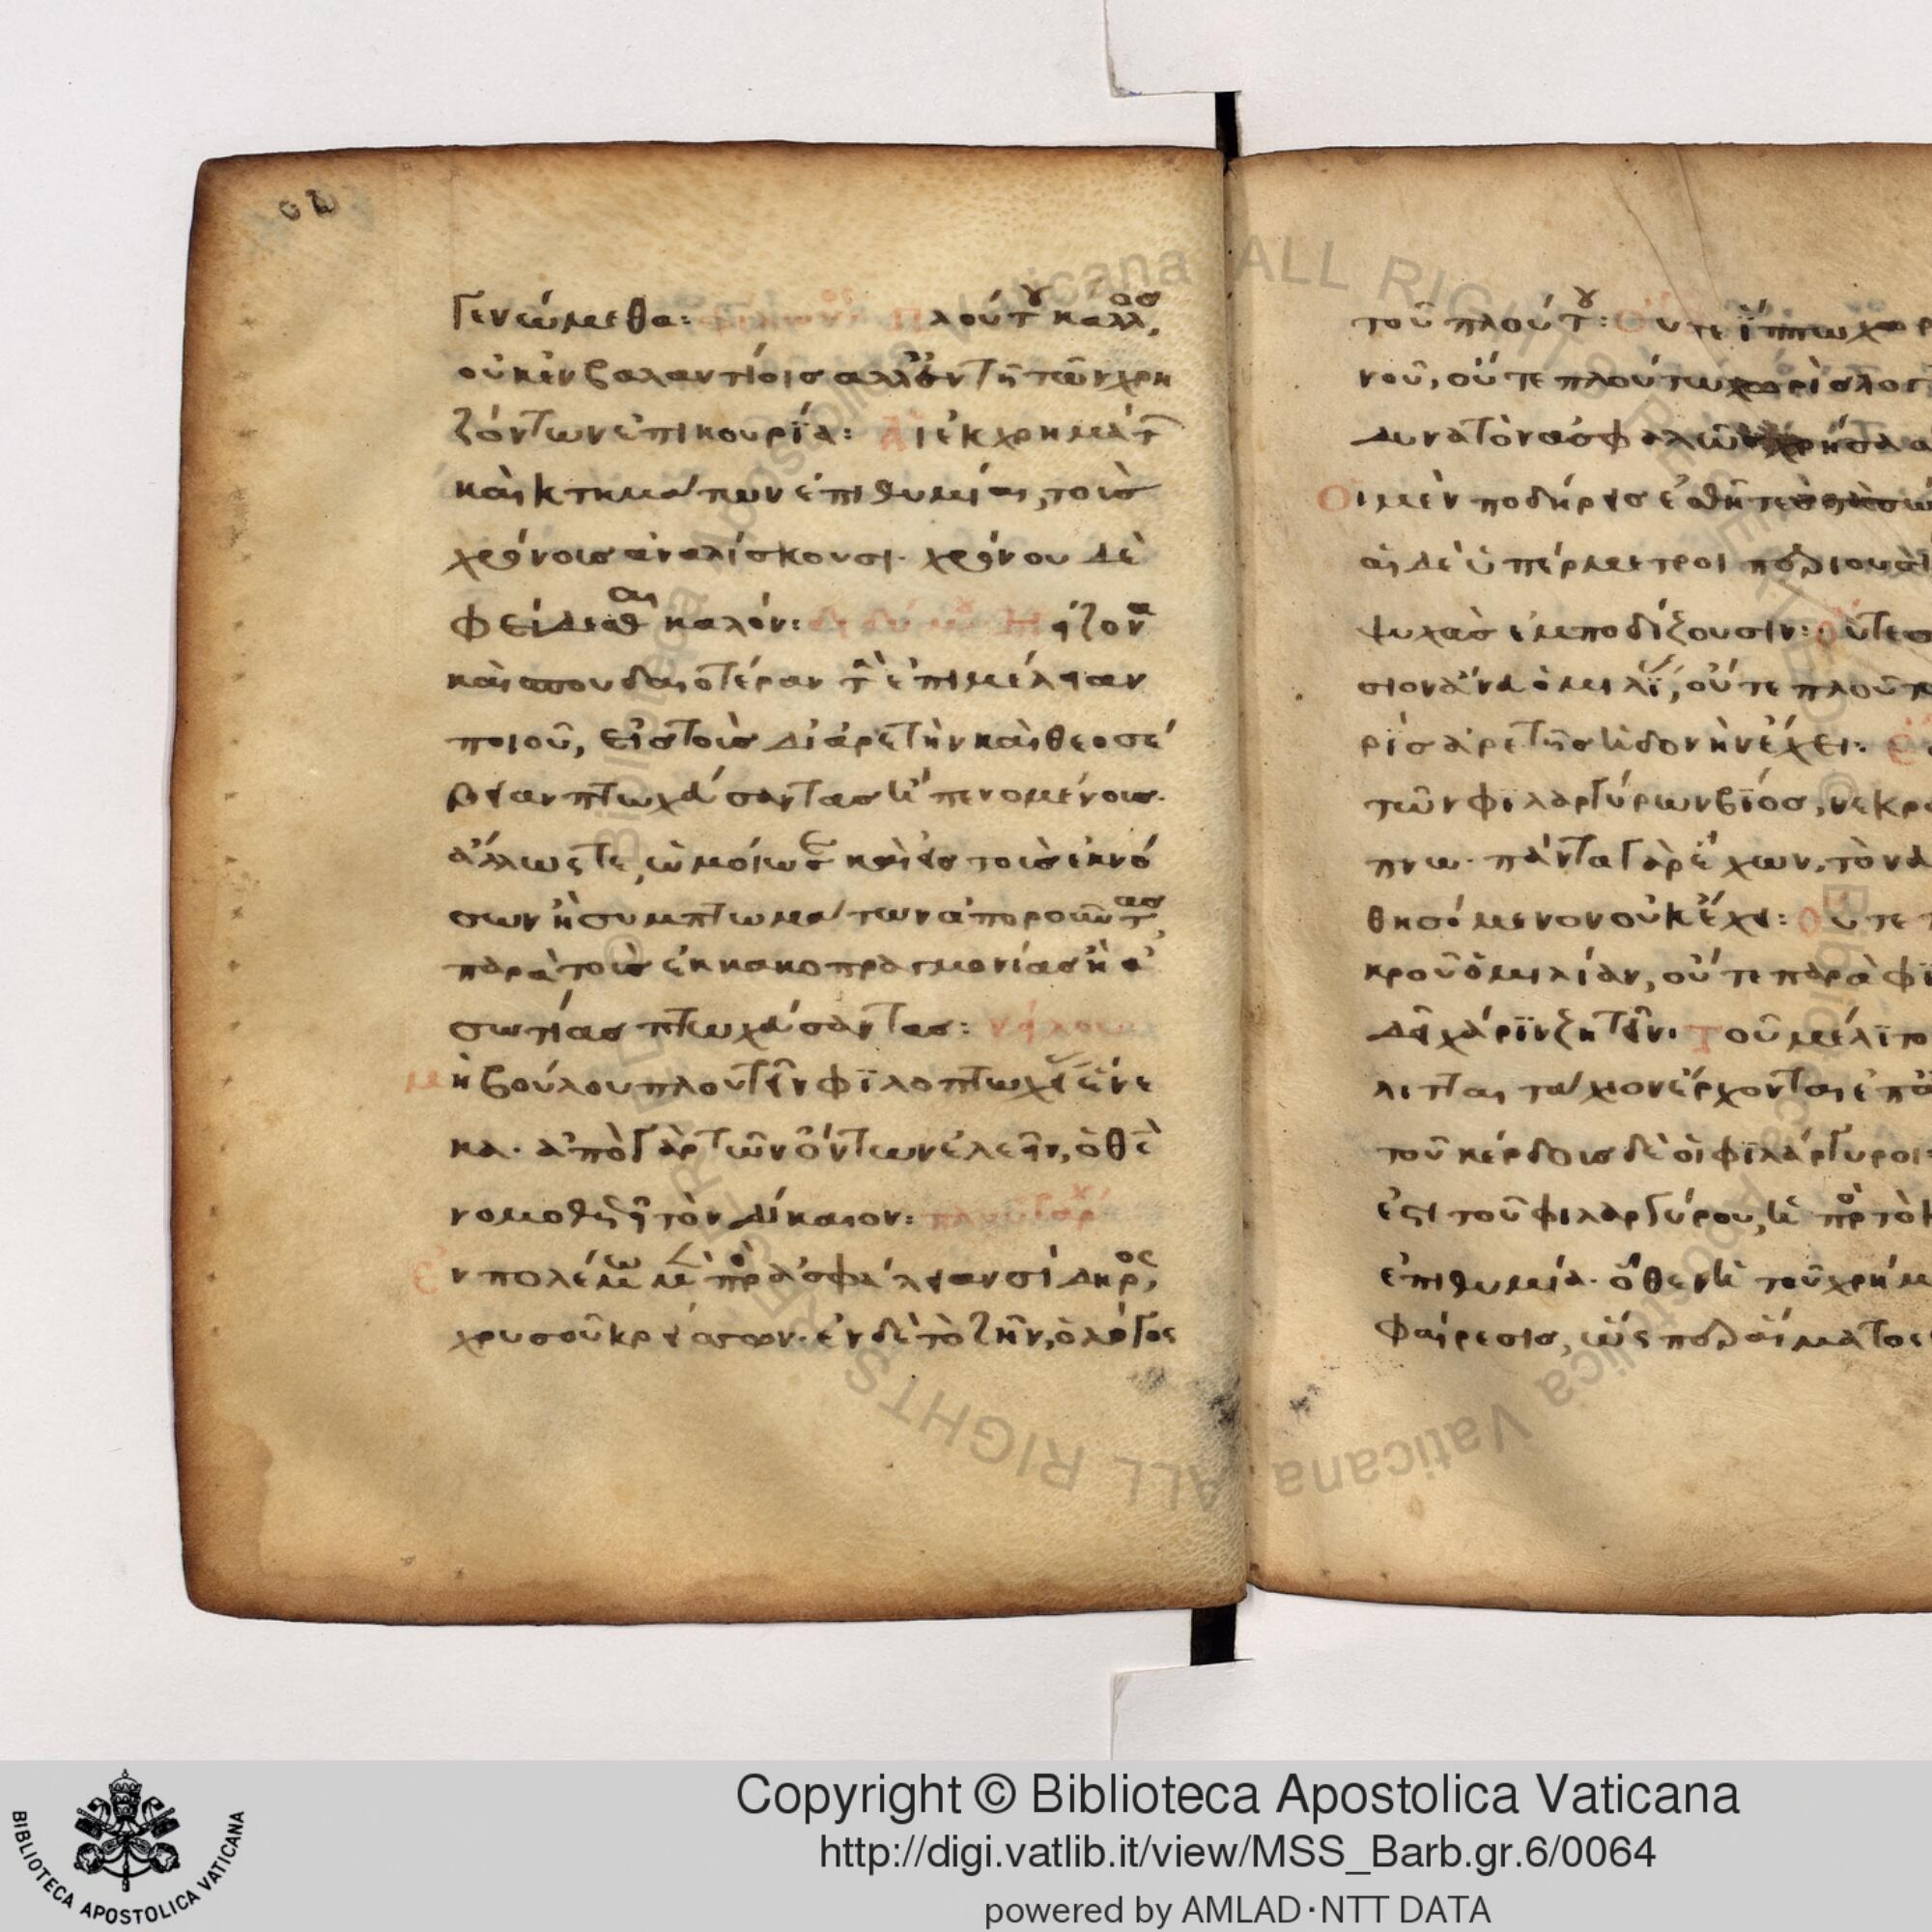 γενώμεθα: πλούτου κάλλος,
οὐκ ἐν βαλαντίοις ἀλλ' ἐν τῇ τῶν χρη
ζόντων ἐπικουρίᾳ: Αἱ ἐκ χρημάτ
καὶ κτημάτων ἐπιθυμίαι, τοὺς
χρόνους ἀναλίσκουσι. χρόνου δὲ
φείδεσθαι καλόν: διδύμου Μείζονα
καὶ σπουδαιοτέραν τ ἐπιμέλειαν
ποιοῦ, εἰς τοὺς δι' ἀρετὴν καὶ θεοσέ
βειαν πτωχεύσαντας πενομένους.
ἄλλως τε, ὠμοίως καὶ εἰς τοὺς ἐκ νό
σων ἢ συμπτωμάτων ἀποροῦντας,
παρὰ τοὺς ἐκ κακοπραγμονίας ἢ ἀ
σωτίας πτωχεύσαντας: νείλου
μὴ βούλου πλουτεῖν φιλοπτωχείας ἕνε
κα. ἀπὸ γὰρ τῶν ὄντων ἐλεεῖν, ὁ θς
νομοθετεῖ τὸν δίκαιον: πλουτάρχου
Ἐν πολέμω μὲν πρὸς ἀσφάλειαν σίδηρος,
χρυσοῦ κρείσσων. ἐν δὲ τὸ ζῆν, ὁ λόγος
τοῦ πλούτου: Οὔτε ἵππω χωρ
νοῦ, οὔτε πλούτω χωρὶς λογ
δυνατὸν ἀσφαλῶς χρήσα
Οἱ μὲν ποδήρεις ἐσθῆτες τὰ σώ
αἱ δὲ ὑπέρμετροι περιουσί
ψυχὰς ἐμποδίζουσιν: Οὔτε
σιον ἄνδ ὁμιλί, οὔτε πλοῦτ
ρὶς ἀρετῆς ἡδονὴν ἔχει:
τῶν φιλαργύρων βίος, νεκρ
πνω. πάντα γὰρ ἔχων, τὸν
θησόμενον οὐκ ἔχει: Οὔτε
κροῦ ὁμιλίαν, οὔτε παρὰ φι
δεῖ χάριν ζητεῖν. Τοῦ μέλιτο
λιτται τάχιον ἔρχονται ἐπ
τοῦ κέρδους δὲ οἱ φιλάργυροι
ἐστὶ τοῦ φιλαργύρου, πρὸς τὸ
ἐπιθυμία. ὅθεν τοῦ χρήμ
φαίρεσις, ὡς περ αἵματος
Copyright © Biblioteca Apostolica Vaticana
http://digi.vatlib.it/view/MSS_Barb.gr.6/0064
powered by AMLAD·NTT DATA
BIBLIOTECA APOSTOLICA VATICANA